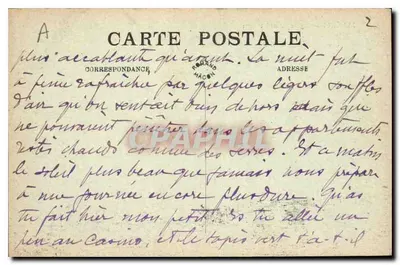 A
2
CARTE POSTALE
CORRESPONDANCE
ADRESSE
ROMAND
MACON
plus accablante qu'avant. La nuit fut
à peine rafraichie par quelques légers souffles
d'air qu'on sentait au dehors mais que
ne pouvaient pénétrer dans les appartements
restés chauds comme des serres. Et ce matin
le soleil plus beau que jamais nous prépare
à une journée encore plus dure. Qu'as
tu fait hier mon petit. Es tu allée un
peu au casino, et le tapis vert t'a-t-il